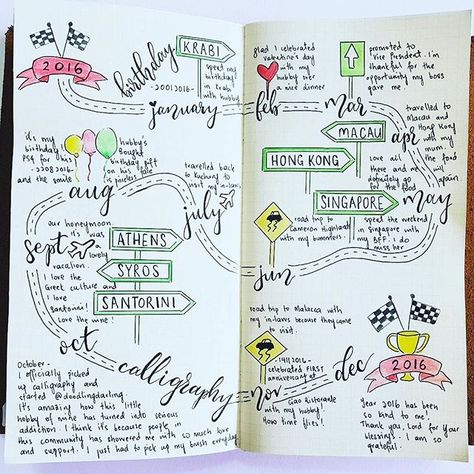 2016
birthday
KRABI
spent and
birthday
in KRABI
with hubby
-20012016-
january
glad I celebrated
valentine's day
with my
hubby over
a nice dinner
feb
promoted to
'vice President'. I'm
thankful for the
opportunity my boss
gave me.
mar
travelled to
Macau and
Hong Kong
with my
mum.
the food
will
again.
apr
MACAU
HONG KONG
love all
there and we
definitely go
for the food
may
SINGAPORE
spend the weekend
in Singapore with
my BFF. I do
miss her
road trip to
Cameron Highlands
with my
jun
it's my
birthday from
PS4 for his
-22082016-
and the smile
hubby's
Bought
birthday gift
on his face
aug
travelled back
to Kuching to
visit my in-laws
july
our honeymoon
it's was
lovely
vacation.
I love the
Greek culture and
I love
Santorini!
Love the wine!
sept
ATHENS
SYROS
SANTORINI
oct
October.
I officially picked
up calligraphy and
started @doodlingdarling.
It's amazing how this little
hobby of mine has turned into serious
addiction. I think it's because people in
this community has showered me with so much love
and support. I just had to pick up my brush everyday
calligraphy
road trip to Malacca with
my in-laws because they came
to visit.
-14112016-
celebrated FIRST
anniversary at
Gao Ristorante
with my hubby!
How time flies!
nov
dec
2016
Year 2016 has been
so kind to me!
Thank you, Lord for Your
blessings. I am so
grateful.